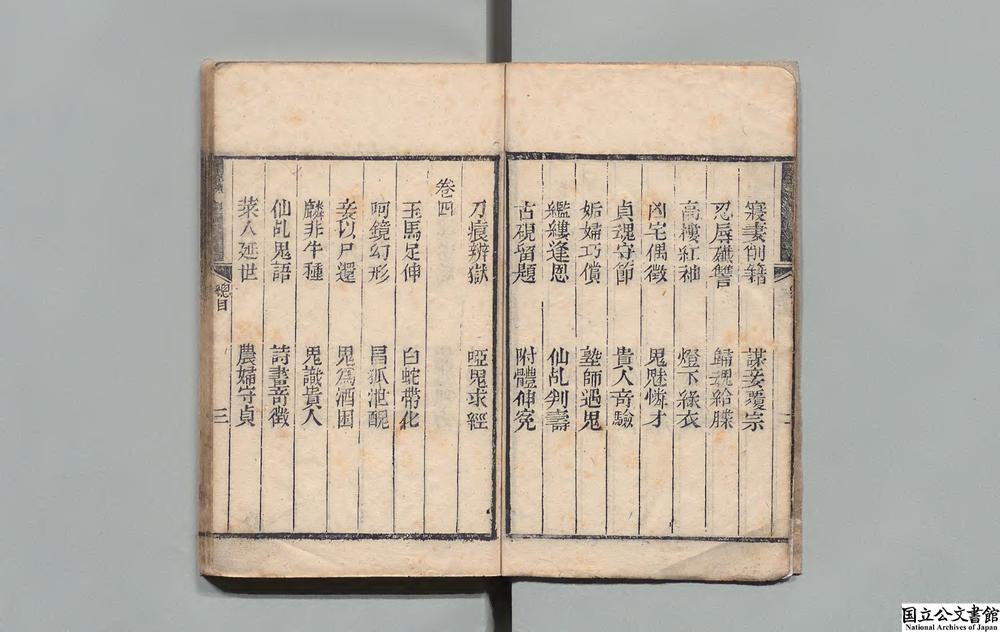 寢妻削籍　謀妾覆宗
忍辱讎讐　歸魂給牒
高樓紅袖　燈下綠衣
凶宅偶徵　鬼魅憐才
貞魂守節　貴人奇驗
妬婦巧償　塾師遇鬼
繿縷逢恩　仙乩判壽
古硯留題　附體伸寃
刀痕辨獄　啞鬼求經
卷四
玉馬足伸　白蛇帶化
呵鏡幻形　冒狐泄醜
妾以尸還　鬼爲酒困
麟非牛種　鬼識貴人
仙乩鬼語　詩畫奇徵
菜人延世　農婦守貞
總目
三
国立公文書館
National Archives of Japan